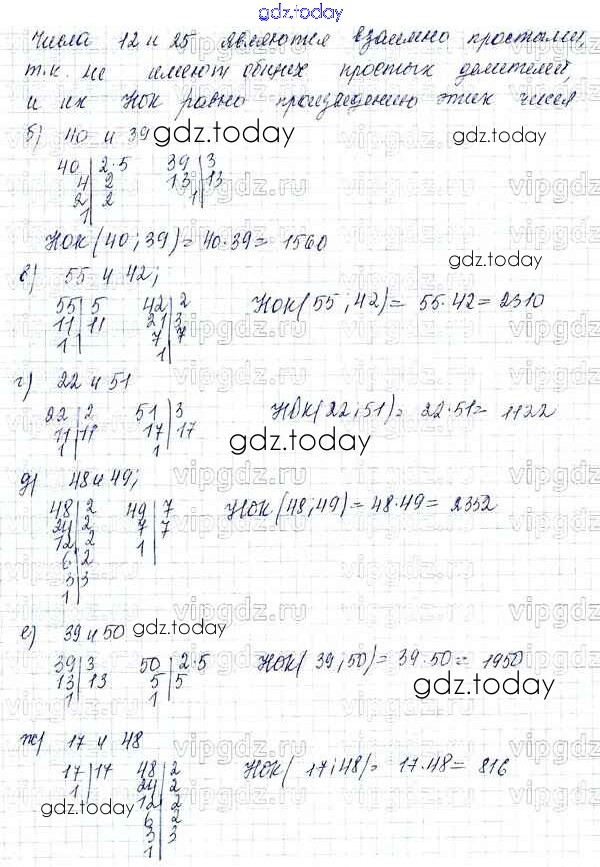 gdz.today
Числа 12 и 25 являются взаимно простыми,
т.к. не имеют общих простых делителей,
и их НОК равно произведению этих чисел
б) 40 и 39
gdz.today
40 | 2·5 39 | 3
4 | 2 13 | 13
2 | 2 1
1
НОК(40; 39) = 40·39 = 1560
gdz.today
в) 55 и 42;
55 | 5 42 | 2
11 | 11 21 | 3
1 7 | 7
1
НОК(55; 42) = 55·42 = 2310
г) 22 и 51
22 | 2 51 | 3
11 | 11 17 | 17
1 1
НОК(22; 51) = 22·51 = 1122
gdz.today
д) 48 и 49;
48 | 2 49 | 7
24 | 2 7 | 7
12 | 2 1
6 | 2
3 | 3
1
НОК(48; 49) = 48·49 = 2352
е) 39 и 50
gdz.today
39 | 3 50 | 2·5
13 | 13 5 | 5
1 1
НОК(39; 50) = 39·50 = 1950
gdz.today
ж) 17 и 48
17 | 17 48 | 2
1 24 | 2
12 | 2
6 | 2
3 | 3
1
НОК(17; 48) = 17·48 = 816
gdz.today
vipgdz.ru